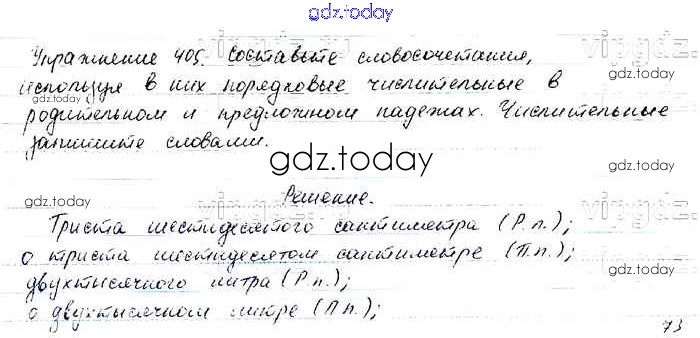 gdz.today
Упражнение 405. Составьте словосочетания,
используя в них порядковые числительные в
gdz.today
родительном и предложном падежах. Числительные
запишите словами.
gdz.today
Решение.
Триста шестидесятого сантиметра (Р.п.);
о триста шестидесятом сантиметре (П.п.);
двухтысячного литра (Р.п.);
о двухтысячном литре (П.п.);
73